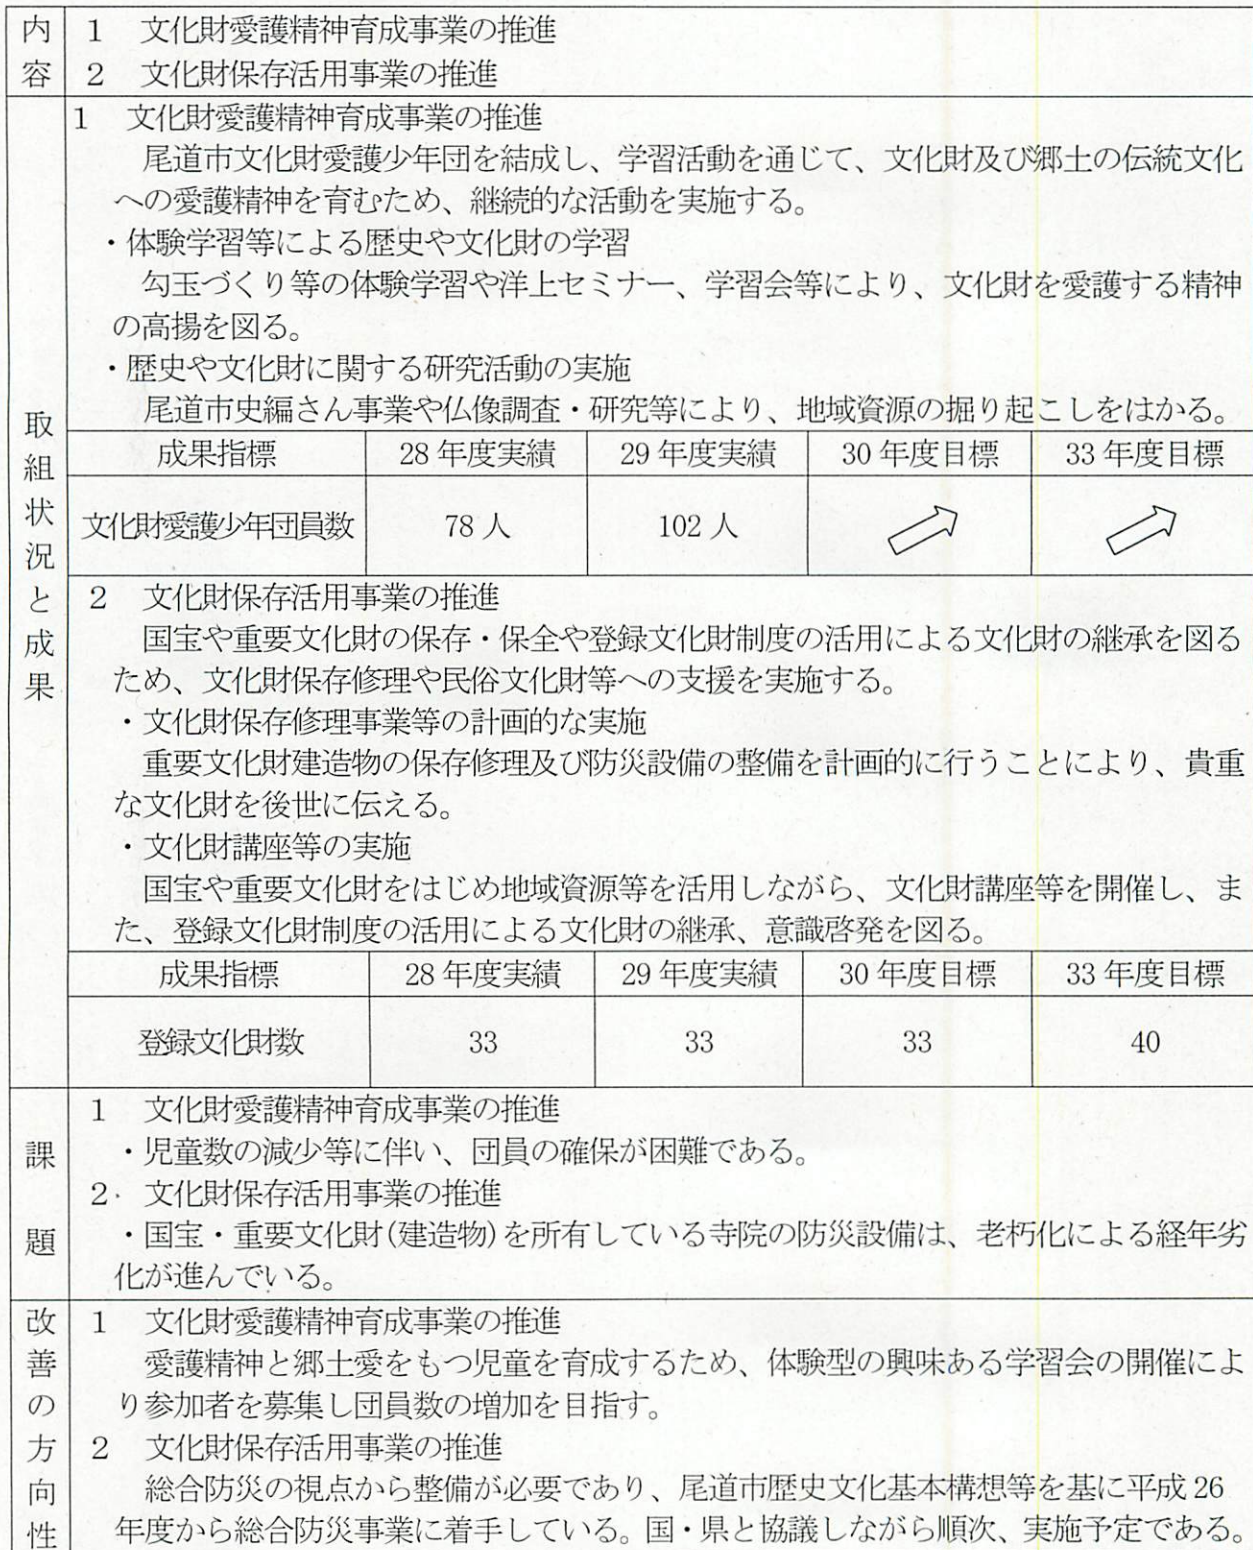 内容
1 文化財愛護精神育成事業の推進
2 文化財保存活用事業の推進
取組状況と成果
1 文化財愛護精神育成事業の推進
尾道市文化財愛護少年団を結成し、学習活動を通じて、文化財及び郷土の伝統文化
への愛護精神を育むため、継続的な活動を実施する。
・体験学習等による歴史や文化財の学習
勾玉づくり等の体験学習や洋上セミナー、学習会等により、文化財を愛護する精神
の高揚を図る。
・歴史や文化財に関する研究活動の実施
尾道市史編さん事業や仏像調査・研究等により、地域資源の掘り起こしをはかる。
成果指標 28年度実績 29年度実績 30年度目標 33年度目標
文化財愛護少年団員数 78人 102人
2 文化財保存活用事業の推進
国宝や重要文化財の保存・保全や登録文化財制度の活用による文化財の継承を図る
ため、文化財保存修理や民俗文化財等への支援を実施する。
・文化財保存修理事業等の計画的な実施
重要文化財建造物の保存修理及び防災設備の整備を計画的に行うことにより、貴重
な文化財を後世に伝える。
・文化財講座等の実施
国宝や重要文化財をはじめ地域資源等を活用しながら、文化財講座等を開催し、ま
た、登録文化財制度の活用による文化財の継承、意識啓発を図る。
成果指標 28年度実績 29年度実績 30年度目標 33年度目標
登録文化財数 33 33 33 40
課題
1 文化財愛護精神育成事業の推進
・児童数の減少等に伴い、団員の確保が困難である。
2 文化財保存活用事業の推進
・国宝・重要文化財(建造物)を所有している寺院の防災設備は、老朽化による経年劣
化が進んでいる。
改善の方向性
1 文化財愛護精神育成事業の推進
愛護精神と郷土愛をもつ児童を育成するため、体験型の興味ある学習会の開催によ
り参加者を募集し団員数の増加を目指す。
2 文化財保存活用事業の推進
総合防災の視点から整備が必要であり、尾道市歴史文化基本構想等を基に平成26
年度から総合防災事業に着手している。国・県と協議しながら順次、実施予定である。